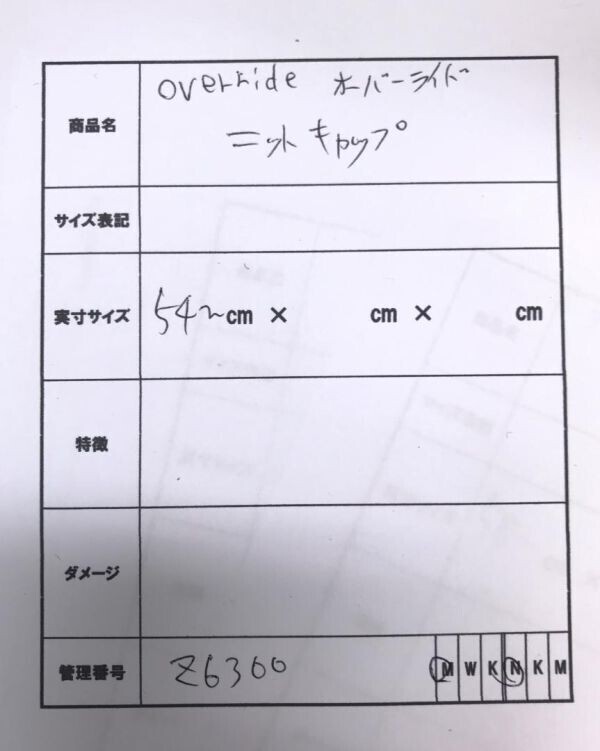 商品名 override オーバーライド
ニットキャップ
サイズ表記
実寸サイズ 54~cm × cm × cm
特徴
ダメージ
管理番号 Z6300 M W K N K M